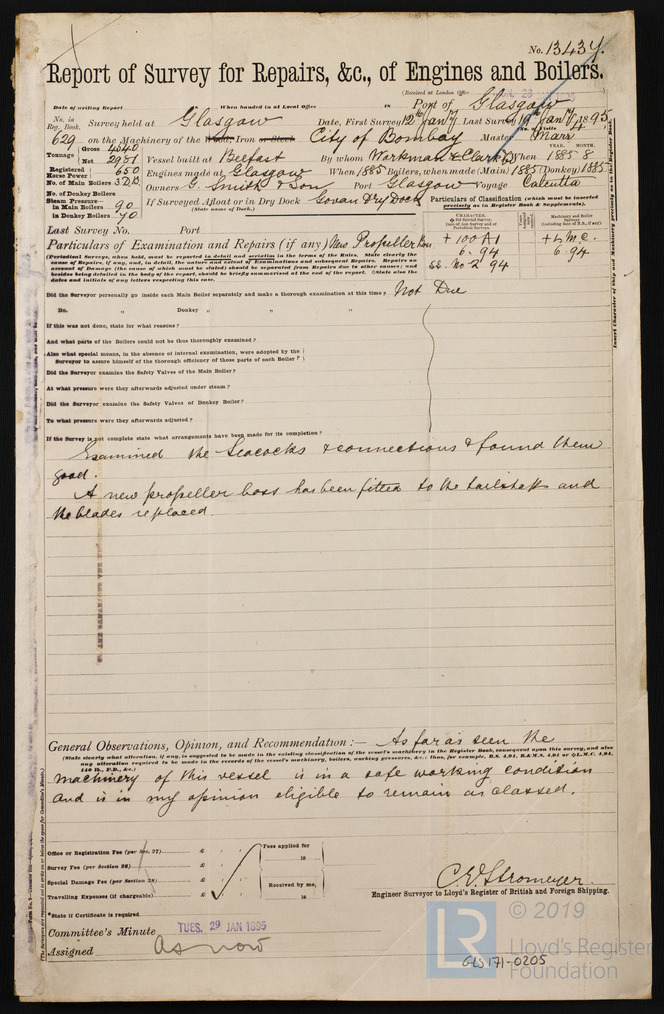 No. 13434.
Report of Survey for Repairs, &c., of Engines and Boilers.
(Received at London Office
Date of writing Report When handed in at Local Office 18 Port of Glasgow
No. in Reg. Book. Survey held at Glasgow Date, First Survey 12th Jany Last Survey 19th Jany 1895
629 on the Machinery of the Wood, Iron or Steel City of Bombay Master Marr
No. of Visits 4
Tonnage Gross 4540 Net 2951 Vessel built at Belfast By whom Workman & Clark When 1885 8
YEAR. MONTH.
Registered Horse Power 650 Engines made at Glasgow When 1885 Boilers, when made (Main) 1885 (Donkey) 1885
No. of Main Boilers Owners G. Smith & Son Port Glasgow Voyage Calcutta
No. of Donkey Boilers
Steam Pressure—
in Main Boilers 90 If Surveyed Afloat or in Dry Dock Govan Dry Dock
in Donkey Boilers 70 (State name of Dock.)
Particulars of Classification (which must be inserted precisely as in Register Book & Supplements).
CHARACTER. Machinery and Boiler Surveys
Last Survey No. Port
+ 100 A1 + L.M.C.
6.94 6.94
SS. No 2 94
Particulars of Examination and Repairs (if any) New Propeller Boss.
(Periodical Surveys, when held, must be reported in detail and seriatim in the terms of the Rules. State clearly the
cause of Repairs, if any, and, in detail, the nature and extent of Examinations and subsequent Repairs. Repairs on
account of Damage (the cause of which must be stated) should be separated from Repairs due to other causes; and
besides being detailed in the body of the report, should be briefly summarised at the end of the report. State also the
dates and initials of any letters respecting this case.
Did the Surveyor personally go inside each Main Boiler separately and make a thorough examination at this time? Not Due
Do. „ Donkey „ „ „
If this was not done, state for what reasons?
And what parts of the Boilers could not be thus thoroughly examined?
Also what special means, in the absence of internal examination, were adopted by the
Surveyor to assure himself of the thorough efficiency of those parts of each Boiler?
Did the Surveyor examine the Safety Valves of the Main Boiler?
At what pressure were they afterwards adjusted under steam?
Did the Surveyor examine the Safety Valves of Donkey Boiler?
To what pressure were they afterwards adjusted?
If the Survey is not complete state what arrangements have been made for its completion?
Examined the Seacocks & connections & found them
good.
A new propeller boss has been fitted to the tailshaft and
the blades replaced.
General Observations, Opinion, and Recommendation:— As far as seen the
(State clearly what alteration, if any, is suggested to be made in the existing classification of the vessel's machinery in the Register Book, consequent upon this survey, and also
any alteration required to be made in the records of the vessel's machinery, boilers, working pressures, &c.; thus, for example, B.S. 4,94, B.&M.S. 4,94 or L.M.C. 4,94,
140 lb., F.D., &c.)
machinery of this vessel is in a safe working condition
and is in my opinion eligible to remain as classed.
Office or Registration Fee (per Sec. 27) £ : : Fees applied for
Survey Fee (per Section 28) £ : : 18
Special Damage Fee (per Section 28) £ : : Received by me,
Travelling Expenses (if chargeable) £ : : 18
C.E. Stromeyer
Engineer Surveyor to Lloyd's Register of British and Foreign Shipping.
*State if Certificate is required
Committee's Minute TUES. 29 JAN 1895
Assigned as now
© 2019
LR Lloyd's Register
Foundation
GLS171-0205